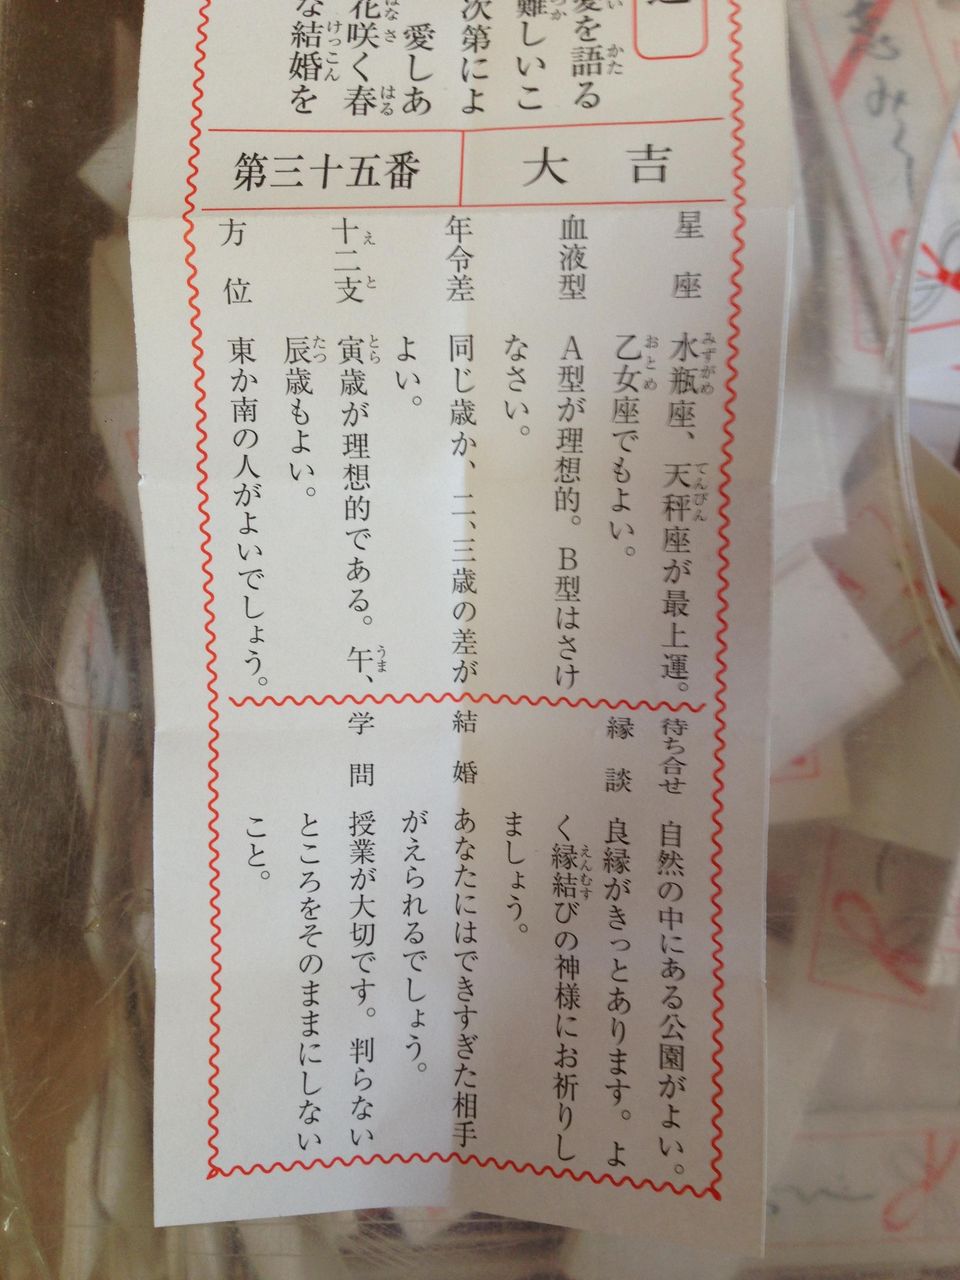 愛を語る
難しいこ
次第によ
愛しあ
花咲く春
な結婚を
大吉
第三十五番
星座 水瓶座、天秤座が最上運。
乙女座でもよい。
血液型 A型が理想的。B型はさけ
なさい。
年令差 同じ歳か、二、三歳の差が
よい。
十二支 寅歳が理想的である。午、
辰歳もよい。
方位 東か南の人がよいでしょう。
待ち合せ 自然の中にある公園がよい。
縁談 良縁がきっとあります。よ
く縁結びの神様にお祈りし
ましょう。
結婚 あなたにはできすぎた相手
がえられるでしょう。
学問 授業が大切です。判らない
ところをそのままにしない
こと。